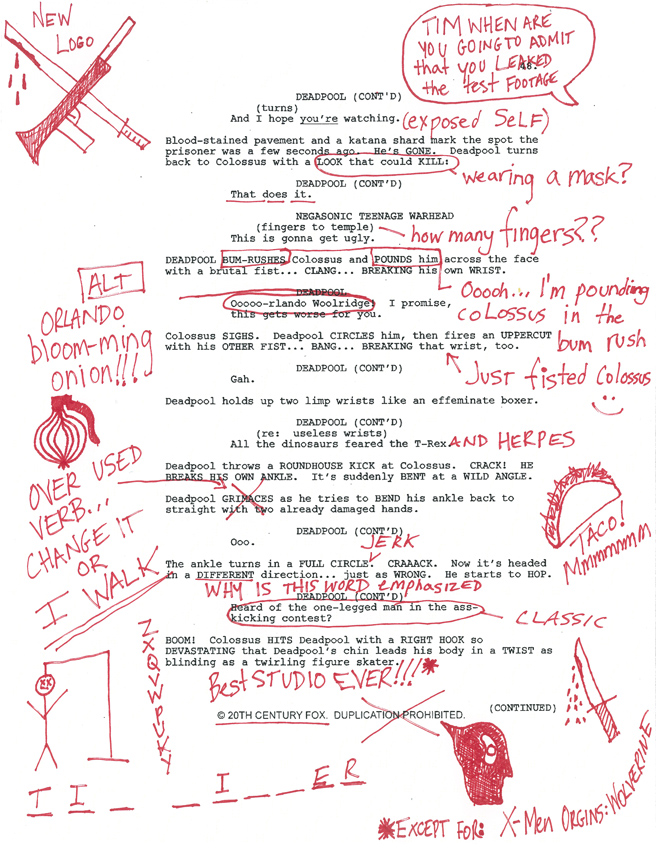 NEW
LOGO
TIM WHEN ARE
YOU GOING TO ADMIT
that you LEAKED
the test FOOTAGE
48.
DEADPOOL (CONT'D)
(turns)
And I hope you're watching.
(exposed SELF)
Blood-stained pavement and a katana shard mark the spot the
prisoner was a few seconds ago. He's GONE. Deadpool turns
back to Colossus with a LOOK that could KILL:
wearing a mask?
DEADPOOL (CONT'D)
That does it.
NEGASONIC TEENAGE WARHEAD
(fingers to temple)
This is gonna get ugly.
how many fingers??
DEADPOOL BUM-RUSHES Colossus and POUNDS him across the face
with a brutal fist... CLANG... BREAKING his own WRIST.
ALT
ORLANDO
bloom-ming
onion!!!
DEADPOOL
Ooooo-rlando Woolridge! I promise,
this gets worse for you.
Ooooh... I'm pounding
COLOSSUS in the
bum rush
Colossus SIGHS. Deadpool CIRCLES him, then fires an UPPERCUT
with his OTHER FIST... BANG... BREAKING that wrist, too.
Just fisted Colossus
DEADPOOL (CONT'D)
Gah.
Deadpool holds up two limp wrists like an effeminate boxer.
DEADPOOL (CONT'D)
(re: useless wrists)
All the dinosaurs feared the T-Rex
AND HERPES
Deadpool throws a ROUNDHOUSE KICK at Colossus. CRACK! HE
BREAKS HIS OWN ANKLE. It's suddenly BENT at a WILD ANGLE.
OVER USED
VERB...
CHANGE IT
OR
I WALK
Deadpool GRIMACES as he tries to BEND his ankle back to
straight with two already damaged hands.
TACO!
Mmmmmmm
DEADPOOL (CONT'D)
Ooo.
JERK
The ankle turns in a FULL CIRCLE. CRAAACK. Now it's headed
in a DIFFERENT direction... just as WRONG. He starts to HOP.
WHY IS THIS WORD emphasized
DEADPOOL (CONT'D)
Heard of the one-legged man in the ass-
kicking contest?
CLASSIC
BOOM! Colossus HITS Deadpool with a RIGHT HOOK so
DEVASTATING that Deadpool's chin leads his body in a TWIST as
blinding as a twirling figure skater.
Z
X
Q
V
W
P
U
K
Y
Best STUDIO EVER!!!*
(CONTINUED)
© 20TH CENTURY FOX. DUPLICATION PROHIBITED.
T I _ _ I _ _ E R
*EXCEPT FOR: X-Men ORGINS: WOLVERINE